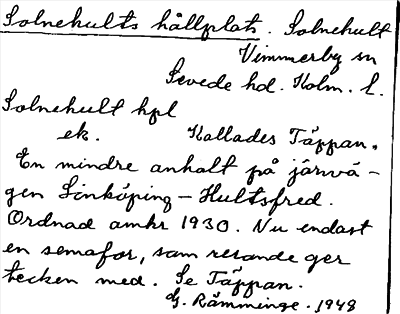 Solnehults hållplats. Solnehult
Vimmerby sn
Sevede hd. Kalm. l.
Solnehult hpl
ek. Kallades Täppan.
En mindre anhalt på järnvä-
gen Linköping - Hultsfred.
Ordnad omkr 1930. Nu endast
en semafor, som resande ger
tecken med. Se Täppan.
G. Rämminge. 1948